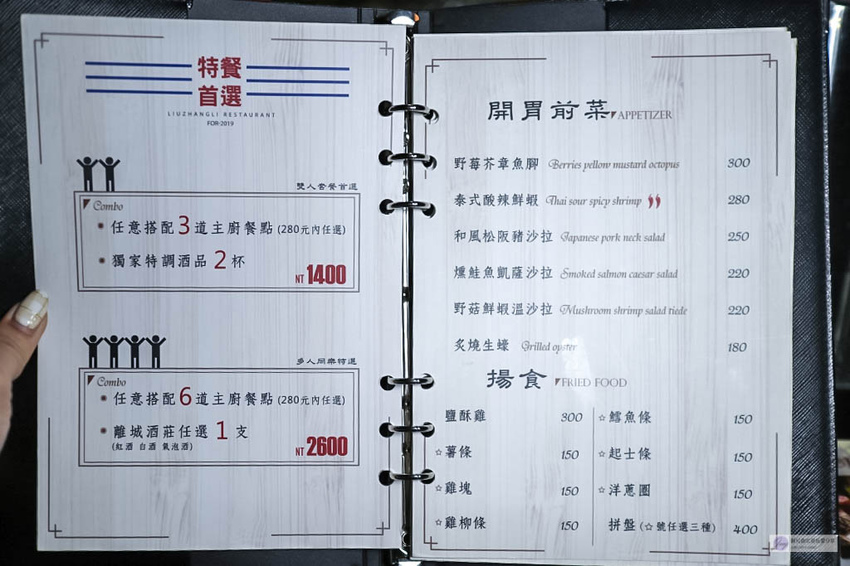 特餐
首選
LIUZHANGLI RESTAURANT
FOR·2019
雙人套餐首選
Combo
任意搭配3道主廚餐點(280元內任選)
獨家特調酒品2杯
NT 1400
多人同樂特選
Combo
任意搭配6道主廚餐點(280元內任選)
離城酒莊任選1支
(紅酒 白酒 氣泡酒)
NT 2600
開胃前菜 APPETIZER
野莓芥章魚腳 Berries yellow mustard octopus 300
泰式酸辣鮮蝦 Thai sour spicy shrimp 280
和風松阪豬沙拉 Japanese pork neck salad 250
燻鮭魚凱薩沙拉 Smoked salmon caesar salad 220
野菇鮮蝦溫沙拉 Mushroom shrimp salad tiede 220
炙燒生蠔 Grilled oyster 180
揚食 FRIED FOOD
鹽酥雞 300
☆薯條 150
☆雞塊 150
☆雞柳條 150
☆鱈魚條 150
☆起士條 150
☆洋蔥圈 150
拼盤(☆號任選三種) 400